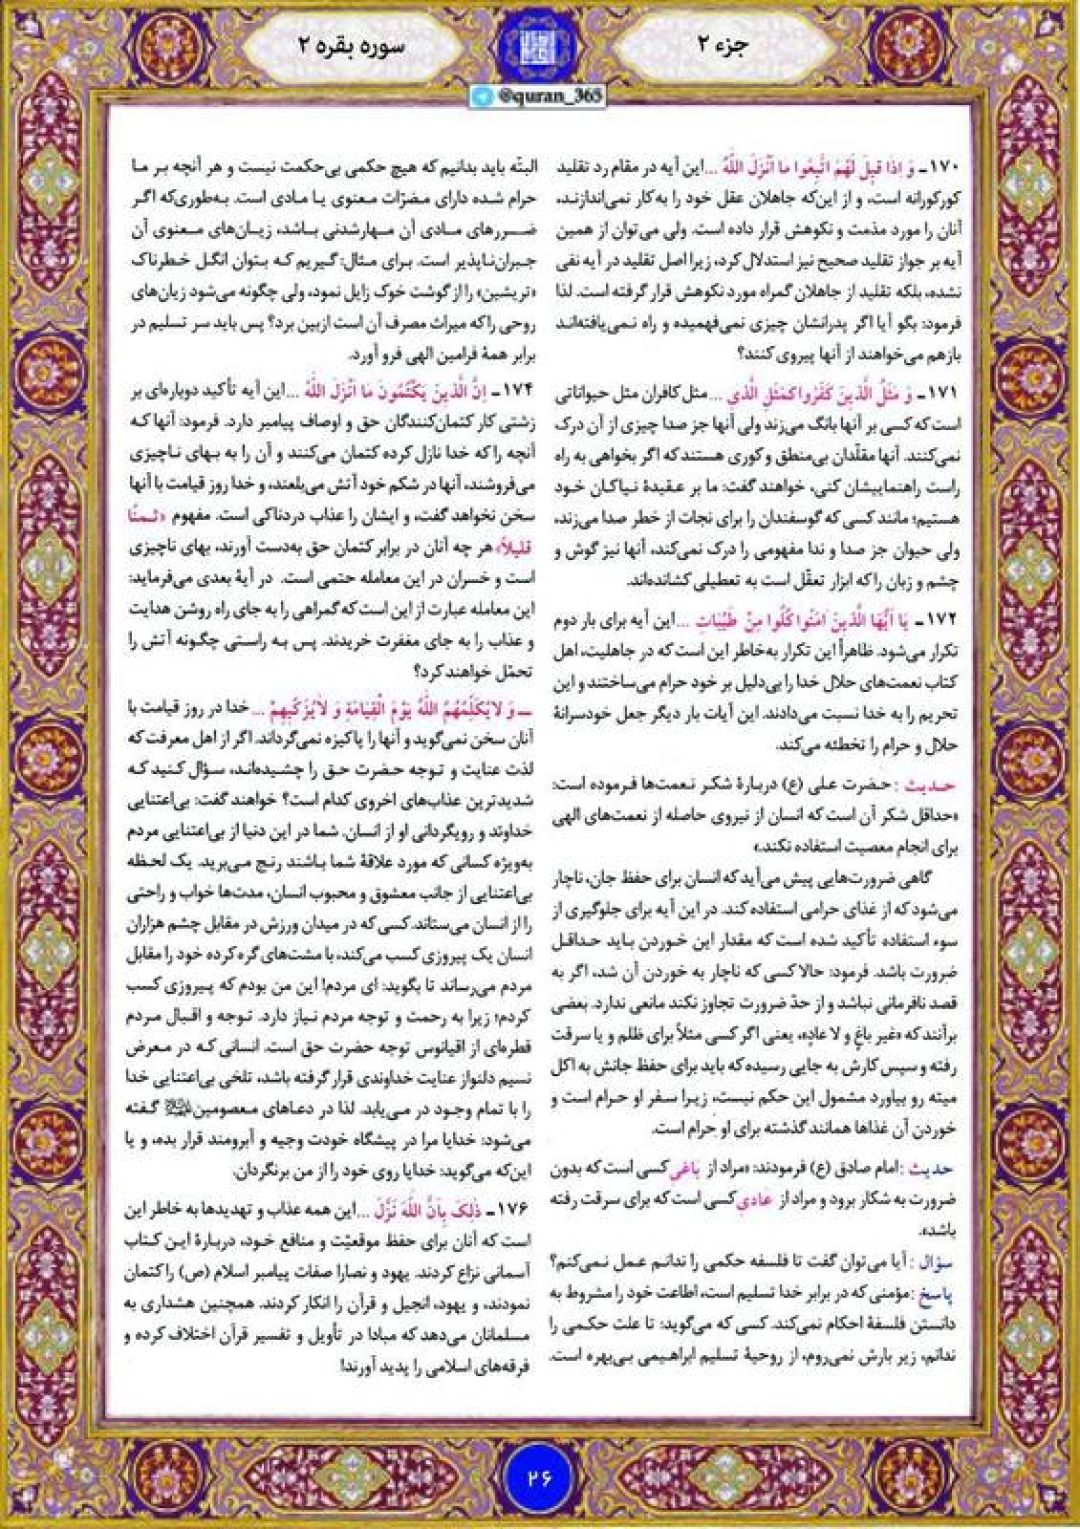 جزء ۲
سوره بقره ۲
@quran_365
۱۷۰ـ وَ اِذا قیلَ لَهُمُ اتَّبِعُوا ما اَنْزَلَ اللّٰهُ ...این آیه در مقام رد تقلید
کورکورانه است، و از این‌که جاهلان عقل خود را به‌کار نمی‌اندازند،
آنان را مورد مذمت و نکوهش قرار داده است. ولی می‌توان از همین
آیه بر جواز تقلید صحیح نیز استدلال کرد، زیرا اصل تقلید در آیه نفی
نشده، بلکه تقلید از جاهلان گمراه مورد نکوهش قرار گرفته است. لذا
فرمود: بگو آیا اگر پدرانشان چیزی نمی‌فهمیده و راه نمی‌یافته‌اند
بازهم می‌خواهند از آنها پیروی کنند؟
۱۷۱ـ وَ مَثَلُ الَّذینَ کَفَرُوا کَمَثَلِ الَّذی ...مثل کافران مثل حیواناتی
است که کسی بر آنها بانگ می‌زند ولی آنها جز صدا چیزی از آن درک
نمی‌کنند. آنها مقلّدان بی‌منطق و کوری هستند که اگر بخواهی به راه
راست راهنماییشان کنی، خواهند گفت: ما بر عقیدهٔ نیاکان خود
هستیم؛ مانند کسی که گوسفندان را برای نجات از خطر صدا می‌زند،
ولی حیوان جز صدا و ندا مفهومی را درک نمی‌کند، آنها نیز گوش و
چشم و زبان را که ابزار تعقّل است به تعطیلی کشانده‌اند.
۱۷۲ـ یا اَیُّهَا الَّذینَ اٰمَنُوا کُلُوا مِنْ طَیِّبَاتِ ...این آیه برای بار دوم
تکرار می‌شود. ظاهراً این تکرار به‌خاطر این است که در جاهلیت، اهل
کتاب نعمت‌های حلال خدا را بی‌دلیل بر خود حرام می‌ساختند و این
تحریم را به خدا نسبت می‌دادند. این آیات بار دیگر جعل خودسرانهٔ
حلال و حرام را تخطئه می‌کند.
حدیث :حضرت علی (ع) دربارهٔ شکر نعمت‌ها فرموده است:
«حداقل شکر آن است که انسان از نیروی حاصله از نعمت‌های الهی
برای انجام معصیت استفاده نکند.»
گاهی ضرورت‌هایی پیش می‌آید که انسان برای حفظ جان، ناچار
می‌شود که از غذای حرامی استفاده کند. در این آیه برای جلوگیری از
سوء استفاده تأکید شده است که مقدار این خوردن باید حداقل
ضرورت باشد. فرمود: حالا کسی که ناچار به خوردن آن شد، اگر به
قصد نافرمانی نباشد و از حدّ ضرورت تجاوز نکند مانعی ندارد. بعضی
برآنند که «غیر باغٍ و لا عادٍ»، یعنی اگر کسی مثلاً برای ظلم و یا سرقت
رفته و سپس کارش به جایی رسیده که باید برای حفظ جانش به اکل
میته رو بیاورد مشمول این حکم نیست، زیرا سفر او حرام است و
خوردن آن غذاها همانند گذشته برای او حرام است.
حدیث :امام صادق (ع) فرمودند: «مراد از باغی کسی است که بدون
ضرورت به شکار برود و مراد از عادی کسی است که برای سرقت رفته
باشد».
سؤال : آیا می‌توان گفت تا فلسفه حکمی را ندانم عمل نمی‌کنم؟
پاسخ :مؤمنی که در برابر خدا تسلیم است، اطاعت خود را مشروط به
دانستن فلسفهٔ احکام نمی‌کند. کسی که می‌گوید: تا علت حکمی را
ندانم، زیر بارش نمی‌روم، از روحیهٔ تسلیم ابراهیمی بی‌بهره است.
البتّه باید بدانیم که هیچ حکمی بی‌حکمت نیست و هر آنچه بر ما
حرام شده دارای مضرّات معنوی یا مادی است. به‌طوری‌که اگر
ضررهای مادی آن مهارشدنی باشد، زیان‌های معنوی آن
جبران‌ناپذیر است. برای مثال: گیریم که بتوان انگل خطرناک
«تریشین» را از گوشت خوک زایل نمود، ولی چگونه می‌شود زیان‌های
روحی را که میراث مصرف آن است ازبین برد؟ پس باید سر تسلیم در
برابر همهٔ فرامین الهی فرو آورد.
۱۷۴ـ اِنَّ الَّذینَ یَکْتُمُونَ ما اَنْزَلَ اللّٰهُ ...این آیه تأکید دوباره‌ای بر
زشتی کار کتمان‌کنندگان حق و اوصاف پیامبر دارد. فرمود: آنها که
آنچه را که خدا نازل کرده کتمان می‌کنند و آن را به بهای ناچیزی
می‌فروشند، آنها در شکم خود آتش می‌بلعند، و خدا روز قیامت با آنها
سخن نخواهد گفت، و ایشان را عذاب دردناکی است. مفهوم «ثَمَنًا
قلیلاً» هر چه آنان در برابر کتمان حق به‌دست آورند، بهای ناچیزی
است و خسران در این معامله حتمی است. در آیهٔ بعدی می‌فرماید:
این معامله عبارت از این است که گمراهی را به جای راه روشن هدایت
و عذاب را به جای مغفرت خریدند. پس به راستی چگونه آتش را
تحمّل خواهند کرد؟
ـ وَ لایُکَلِّمُهُمُ اللّٰهُ یَوْمَ الْقِیَامَةِ وَ لایُزَکّیهِمْ ...خدا در روز قیامت با
آنان سخن نمی‌گوید و آنها را پاکیزه نمی‌گرداند. اگر از اهل معرفت که
لذت عنایت و توجه حضرت حق را چشیده‌اند، سؤال کنید که
شدیدترین عذاب‌های اخروی کدام است؟ خواهند گفت: بی‌اعتنایی
خداوند و رویگردانی او از انسان. شما در این دنیا از بی‌اعتنایی مردم
به‌ویژه کسانی که مورد علاقهٔ شما باشند رنج می‌برید. یک لحظه
بی‌اعتنایی از جانب معشوق و محبوب انسان، مدت‌ها خواب و راحتی
را از انسان می‌ستاند. کسی که در میدان ورزش در مقابل چشم هزاران
انسان یک پیروزی کسب می‌کند، با مشت‌های گره کرده خود را مقابل
مردم می‌رساند تا بگوید: ای مردم! این من بودم که پیروزی کسب
کردم؛ زیرا به رحمت و توجه مردم نیاز دارد. توجه و اقبال مردم
قطره‌ای از اقیانوس توجه حضرت حق است. انسانی که در معرض
نسیم دلنواز عنایت خداوندی قرار گرفته باشد، تلخی بی‌اعتنایی خدا
را با تمام وجود در می‌یابد. لذا در دعاهای معصومین گفته
می‌شود: خدایا مرا در پیشگاه خودت وجیه و آبرومند قرار بده، و یا
این‌که می‌گوید: خدایا روی خود را از من برنگردان.
۱۷۶ـ ذٰلِکَ بِاَنَّ اللّٰهَ نَزَّلَ ...این همه عذاب و تهدیدها به خاطر این
است که آنان برای حفظ موقعیّت و منافع خود، دربارهٔ این کتاب
آسمانی نزاع کردند. یهود و نصارا صفات پیامبر اسلام (ص) را کتمان
نمودند، و یهود، انجیل و قرآن را انکار کردند. همچنین هشداری به
مسلمانان می‌دهد که مبادا در تأویل و تفسیر قرآن اختلاف کرده و
فرقه‌های اسلامی را پدید آورند!
۲۶